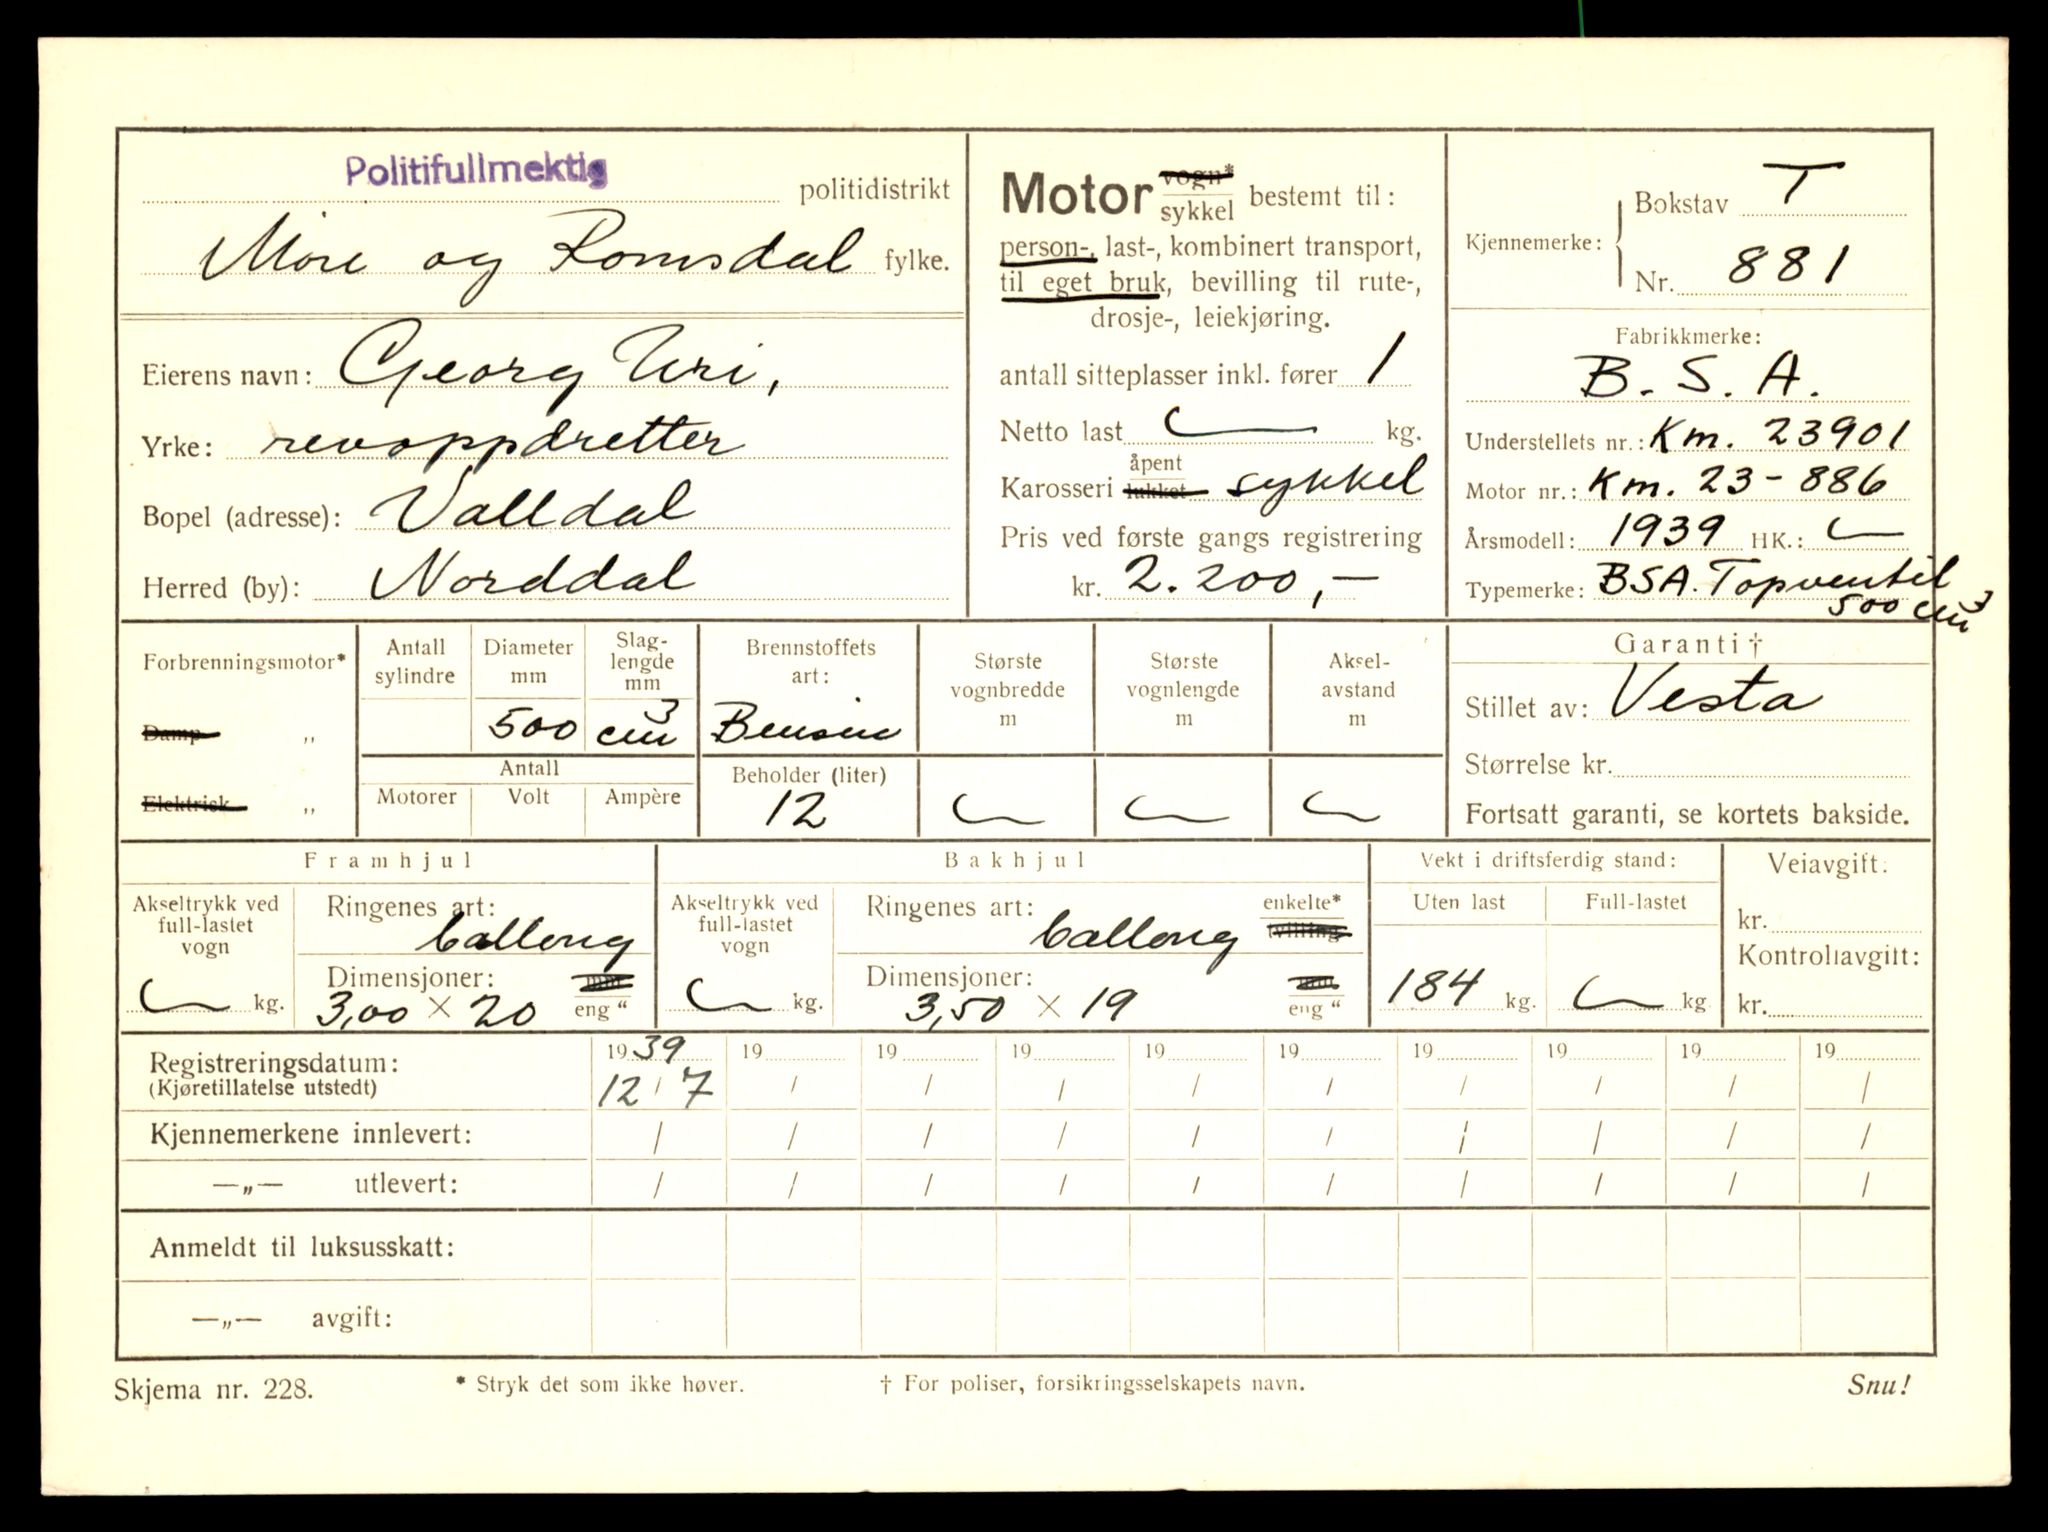 Politifullmektig politidistrikt
Möre og Romsdal fylke.
Eierens navn: Georg Uri,
Yrke: revoppdretter
Bopel (adresse): Valldal
Herred (by): Norddal
Motor vogn* sykkel bestemt til:
person-, last-, kombinert transport,
til eget bruk, bevilling til rute-,
drosje-, leiekjøring.
antall sitteplasser inkl. fører 1
Netto last kg.
Karosseri åpent lukket sykkel
Pris ved første gangs registrering
kr. 2.200,-
Kjennemerke: Bokstav T
Nr. 881
Fabrikkmerke:
B. S. A.
Understellets nr.: Km. 23901
Motor nr.: Km. 23-886
Årsmodell: 1939 HK.:
Typemerke: BSA. Topventil
500 cm3
Forbrenningsmotor*
Damp „
Elektrisk „
Antall sylindre
Diameter mm
Slag-
lengde
mm
500 cm3
Antall
Motorer Volt Ampère
Brennstoffets
art:
Bensin
Beholder (liter)
12
Største
vognbredde
m
Største
vognlengde
m
Aksel-
avstand
m
Garanti†
Stillet av: Vesta
Størrelse kr.
Fortsatt garanti, se kortets bakside.
Framhjul
Akseltrykk ved
full-lastet
vogn
kg.
Ringenes art:
ballong
Dimensjoner: mm
3,00 × 20 eng “
Bakhjul
Akseltrykk ved
full-lastet
vogn
kg.
Ringenes art: enkelte*
ballong tvilling
Dimensjoner: mm
3,50 × 19 eng “
Vekt i driftsferdig stand:
Uten last Full-lastet
184 kg. kg.
Veiavgift:
kr.
Kontrollavgift:
kr.
Registreringsdatum: 1939 19 19 19 19 19 19 19 19 19
(Kjøretillatelse utstedt) 12 / 7 / / / / / / / / /
Kjennemerkene innlevert: / / / / / / / / / /
—„— utlevert: / / / / / / / / / /
Anmeldt til luksusskatt:
—„— avgift:
Skjema nr. 228. * Stryk det som ikke høver. † For poliser, forsikringsselskapets navn. Snu!